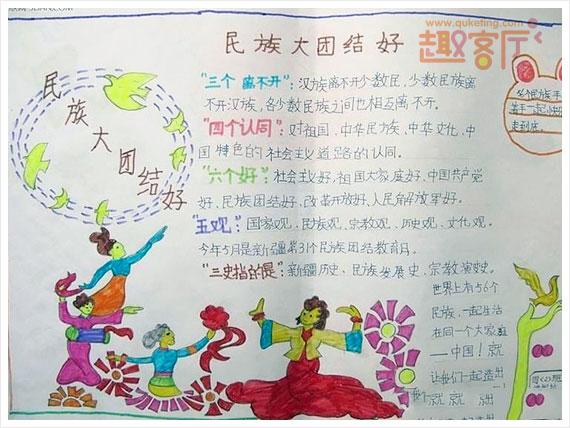 www.quketing.com
趣客厅
民族大团结好
民族大团结好
"三个离不开":汉族离不开少数民,少数民族离
不开汉族,各少数民族之间也相互离不开。
"四个认同":对祖国,中华民族,中华文化,中
国特色的社会主义道路的认同。
"六个好":社会主义好,祖国大家庭好,中国共产党
好,民族团结好,改革开放好,人民解放军好。
"五观":国家观、民族观、宗教观、历史观、文化观。
今年5月是新疆第31个民族团结教育月。
"三史指的是":新疆历史、民族发展史,宗教演变。
世界上有56个
民族,一起生活
在同一个大家庭
——中国!就
让我们一起
就就出
走到底。